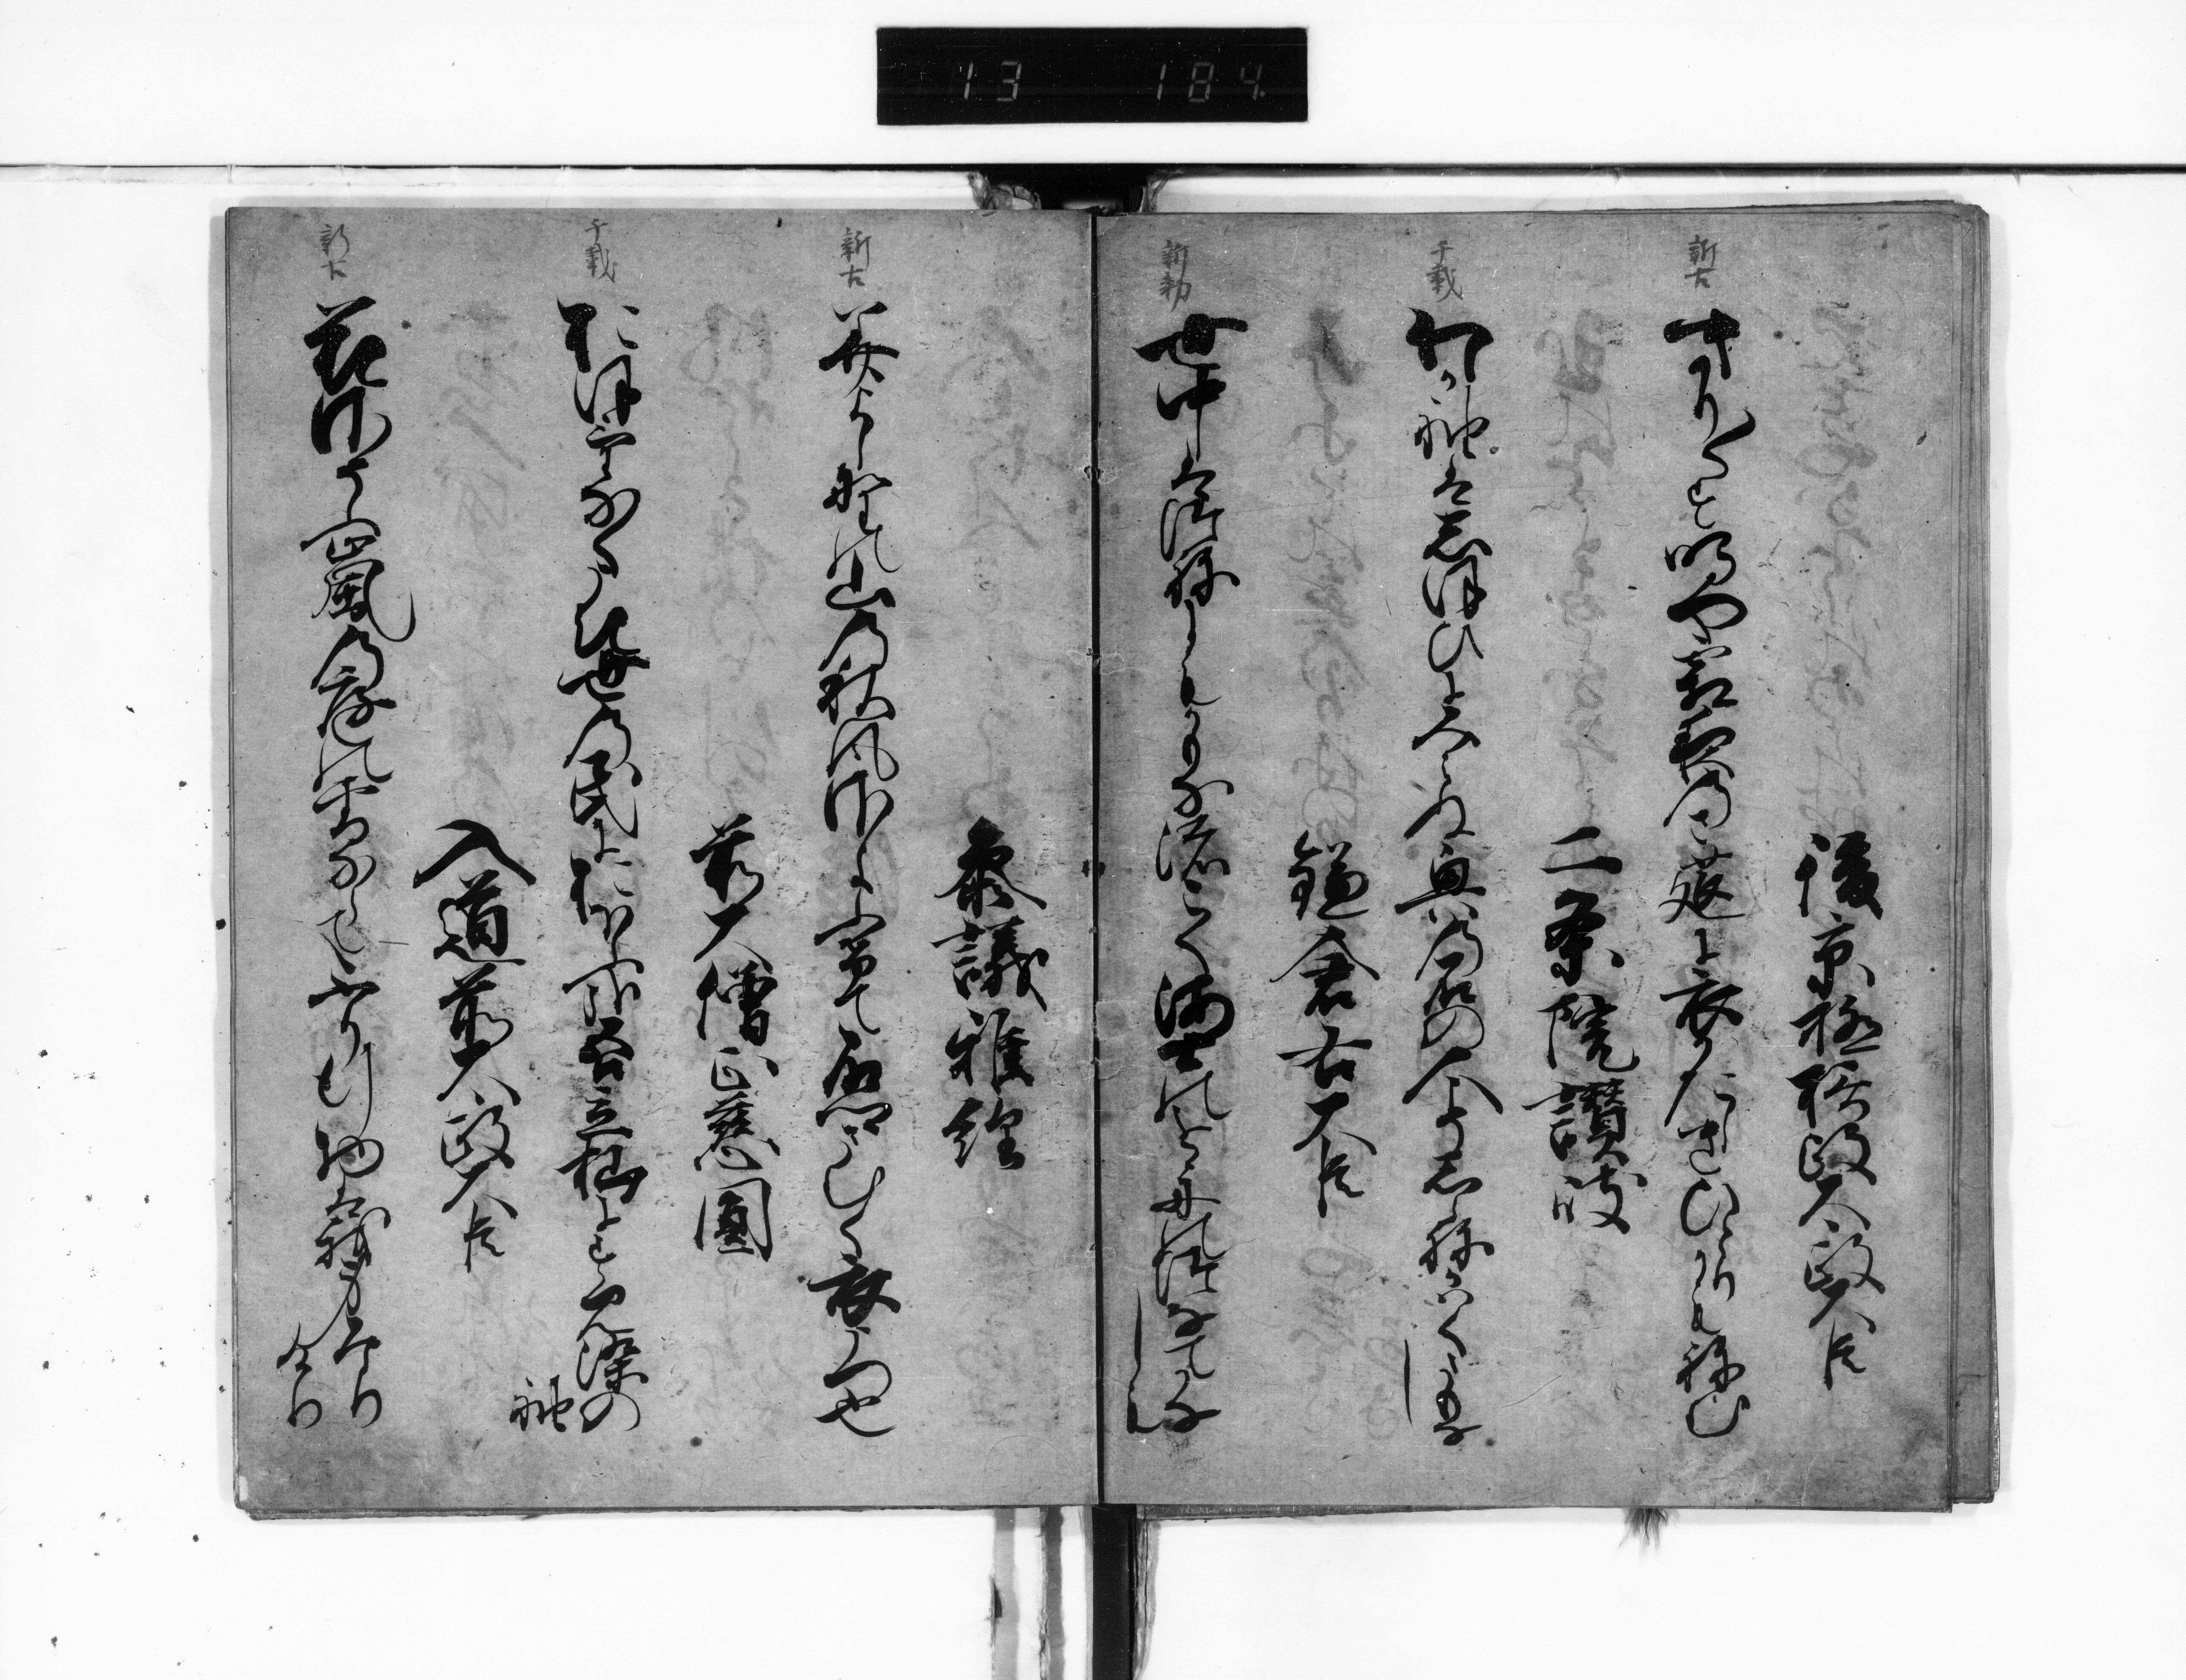 13 184
後京極摂政太政大臣
新古
きり〳〵す鳴や霜夜のさ莚に衣かたしきひとりかも祢む
二条院讃岐
千載
わか袖は志保ひにみえぬ奥の石の人こそ志ら祢かはくまもなし
鎌倉右大臣
新勅
世中は常にもかもな渚こく海士の小舟の綱手かなしも
参議雅経
新古
みよし野の山の秋風さよ更て古郷さむく衣うつ也
前大僧正慈圓
千載
おほけなくうき世の民におほふ哉吾立杣にすみ染の
袖
入道前太政大臣
新古
花さそふ嵐の庭の雪ならてふり行物は我身なり
けり